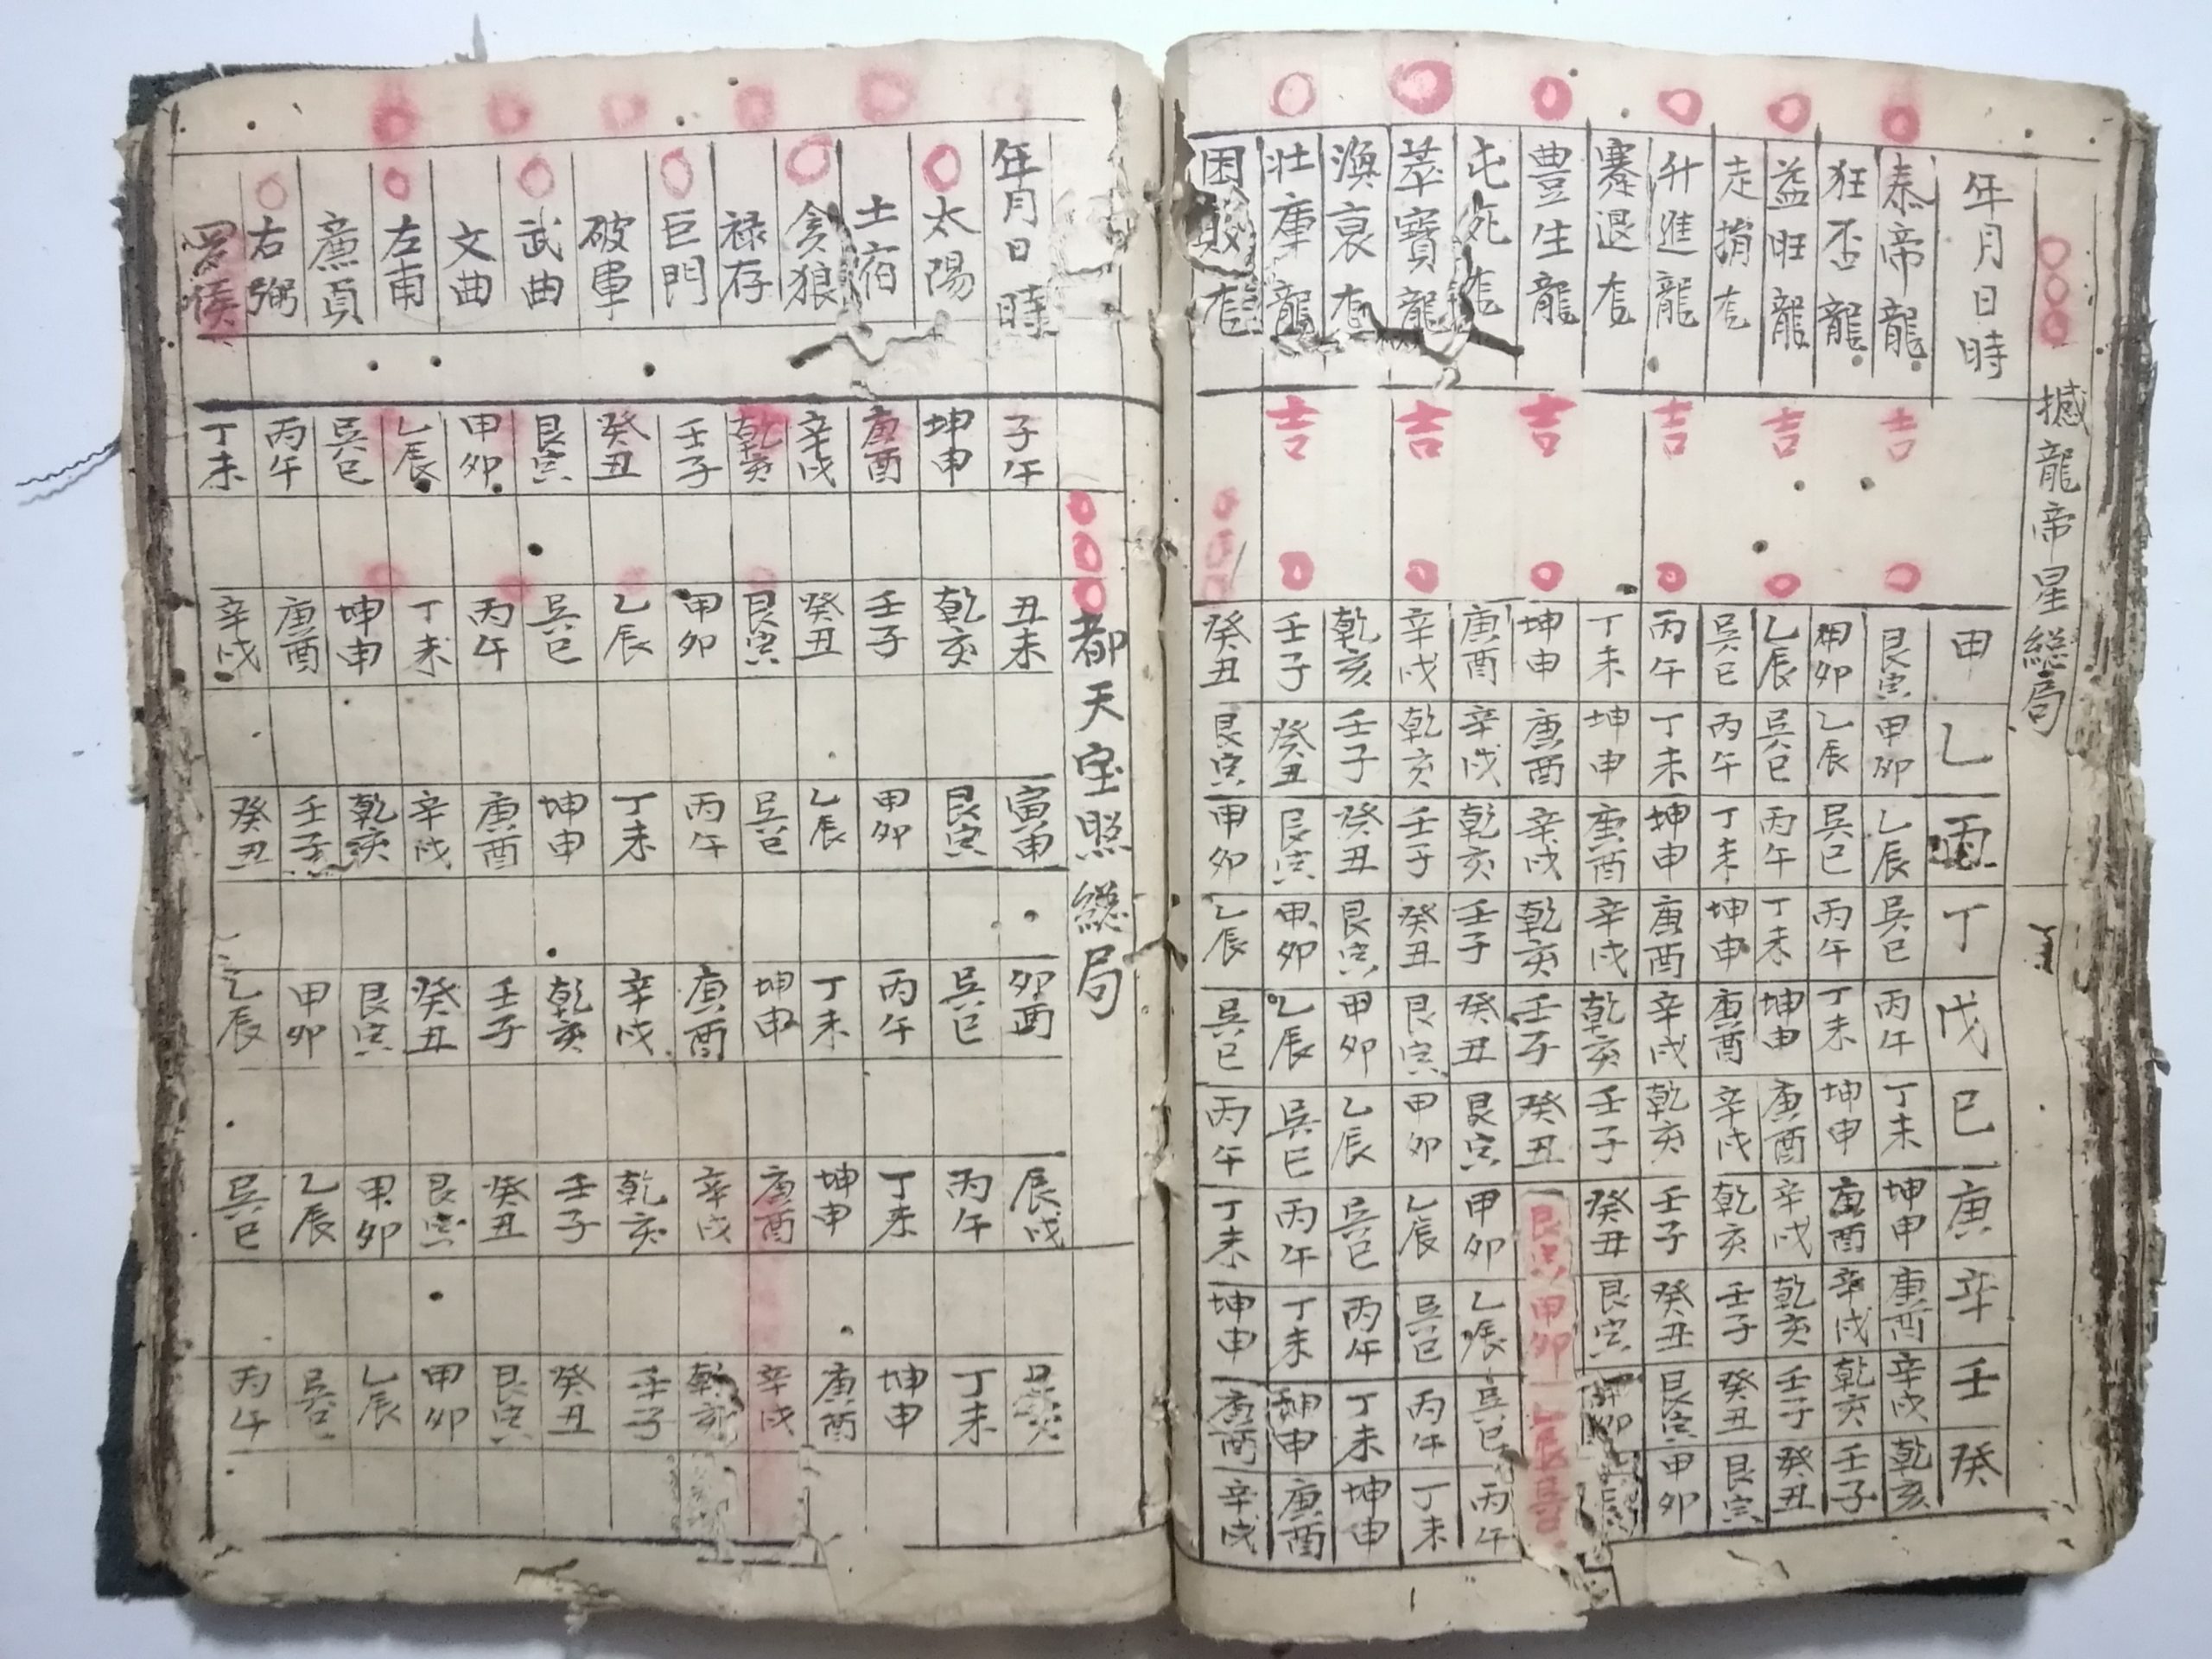 撼龍帝星總局
年月日時 甲 乙 丙 丁 戊 己 庚 辛 壬 癸
泰帝龍 吉 艮寅 甲卯 乙辰 巽巳 丙午 丁未 坤申 庚酉 辛戌 乾亥
狂否龍 甲卯 乙辰 巽巳 丙午 丁未 坤申 庚酉 辛戌 乾亥 壬子
益旺龍 吉 乙辰 巽巳 丙午 丁未 坤申 庚酉 辛戌 乾亥 壬子 癸丑
走捎尨 巽巳 丙午 丁未 坤申 庚酉 辛戌 乾亥 壬子 癸丑 艮寅
升進龍 吉 丙午 丁未 坤申 庚酉 辛戌 乾亥 壬子 癸丑 艮寅 甲卯
蹇退尨 丁未 坤申 庚酉 辛戌 乾亥 壬子 癸丑 艮寅 甲卯
豊生龍 吉 坤申 庚酉 辛戌 乾亥 壬子 癸丑 艮寅 甲卯 乙辰 巽巳
屯死尨 庚酉 辛戌 乾亥 壬子 癸丑 艮寅 甲卯 乙辰 巽巳 丙午
萃寶龍 吉 辛戌 乾亥 壬子 癸丑 艮寅 甲卯 乙辰 巽巳 丙午 丁未
渙哀尨 乾亥 壬子 癸丑 艮寅 甲卯 乙辰 巽巳 丙午 丁未 坤申
壯庫龍 吉 壬子 癸丑 艮寅 甲卯 乙辰 巽巳 丙午 丁未 坤申 庚酉
困敗尨 癸丑 艮寅 甲卯 乙辰 巽巳 丙午 丁未 坤申 庚酉 辛戌
都天宝照總局
年月日時 子午 丑未 寅申 卯酉 辰戌
太陽 坤申 乾亥 艮寅 巽巳 丙午 丁未
土宿 庚酉 壬子 甲卯 丙午 丁未 坤申
貪狼 辛戌 癸丑 乙辰 丁未 坤申 庚酉
禄存 乾亥 艮寅 巽巳 坤申 庚酉 辛戌
巨門 壬子 甲卯 丙午 庚酉 辛戌 乾亥
破軍 癸丑 乙辰 丁未 辛戌 乾亥 壬子
武曲 艮寅 巽巳 坤申 乾亥 壬子 癸丑
文曲 甲卯 丙午 庚酉 壬子 癸丑 艮寅
左甫 乙辰 丁未 辛戌 癸丑 艮寅 甲卯
亷貞 巽巳 坤申 乾亥 艮寅 甲卯 乙辰
右弼 丙午 庚酉 壬子 甲卯 乙辰 巽巳
罗猴 丁未 辛戌 癸丑 乙辰 巽巳 丙午